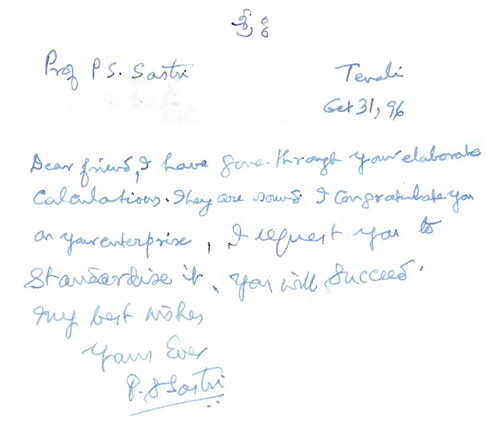 శ్రీః
Prof P S. Sastri
Tenali
Oct 31, 96
Dear friend, I have gone through your elaborate
Calculations. They are sound I Congratulate you
on your enterprise, I request you to
Standardise it, you will Succeed.
My best wishes
Yours Ever
P. S Sastri